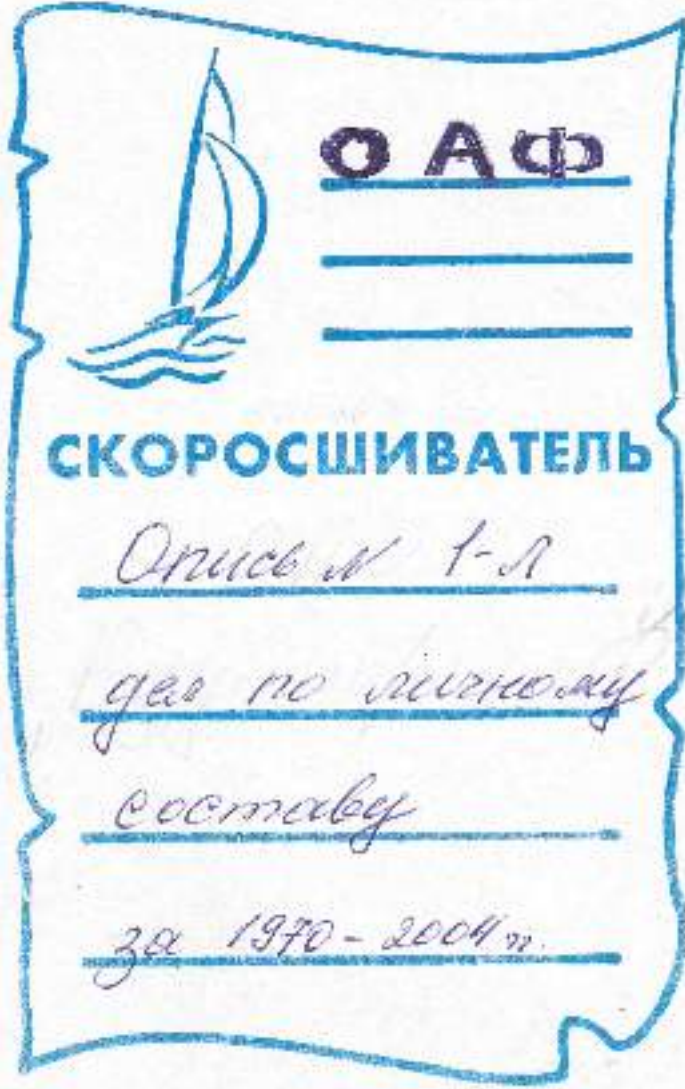 ОАФ
СКОРОСШИВАТЕЛЬ
Опись № 1-Л
дел по личному
составу
за 1970-2004 гг.